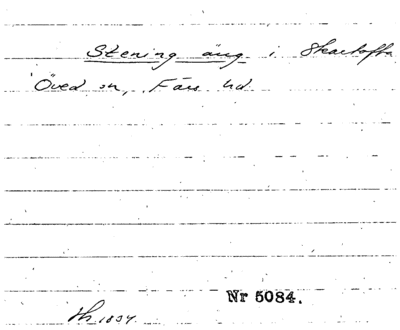 Stening äng i Skartofta
Öved sn, Färs hd
Nr 5084.
Th. 1834.